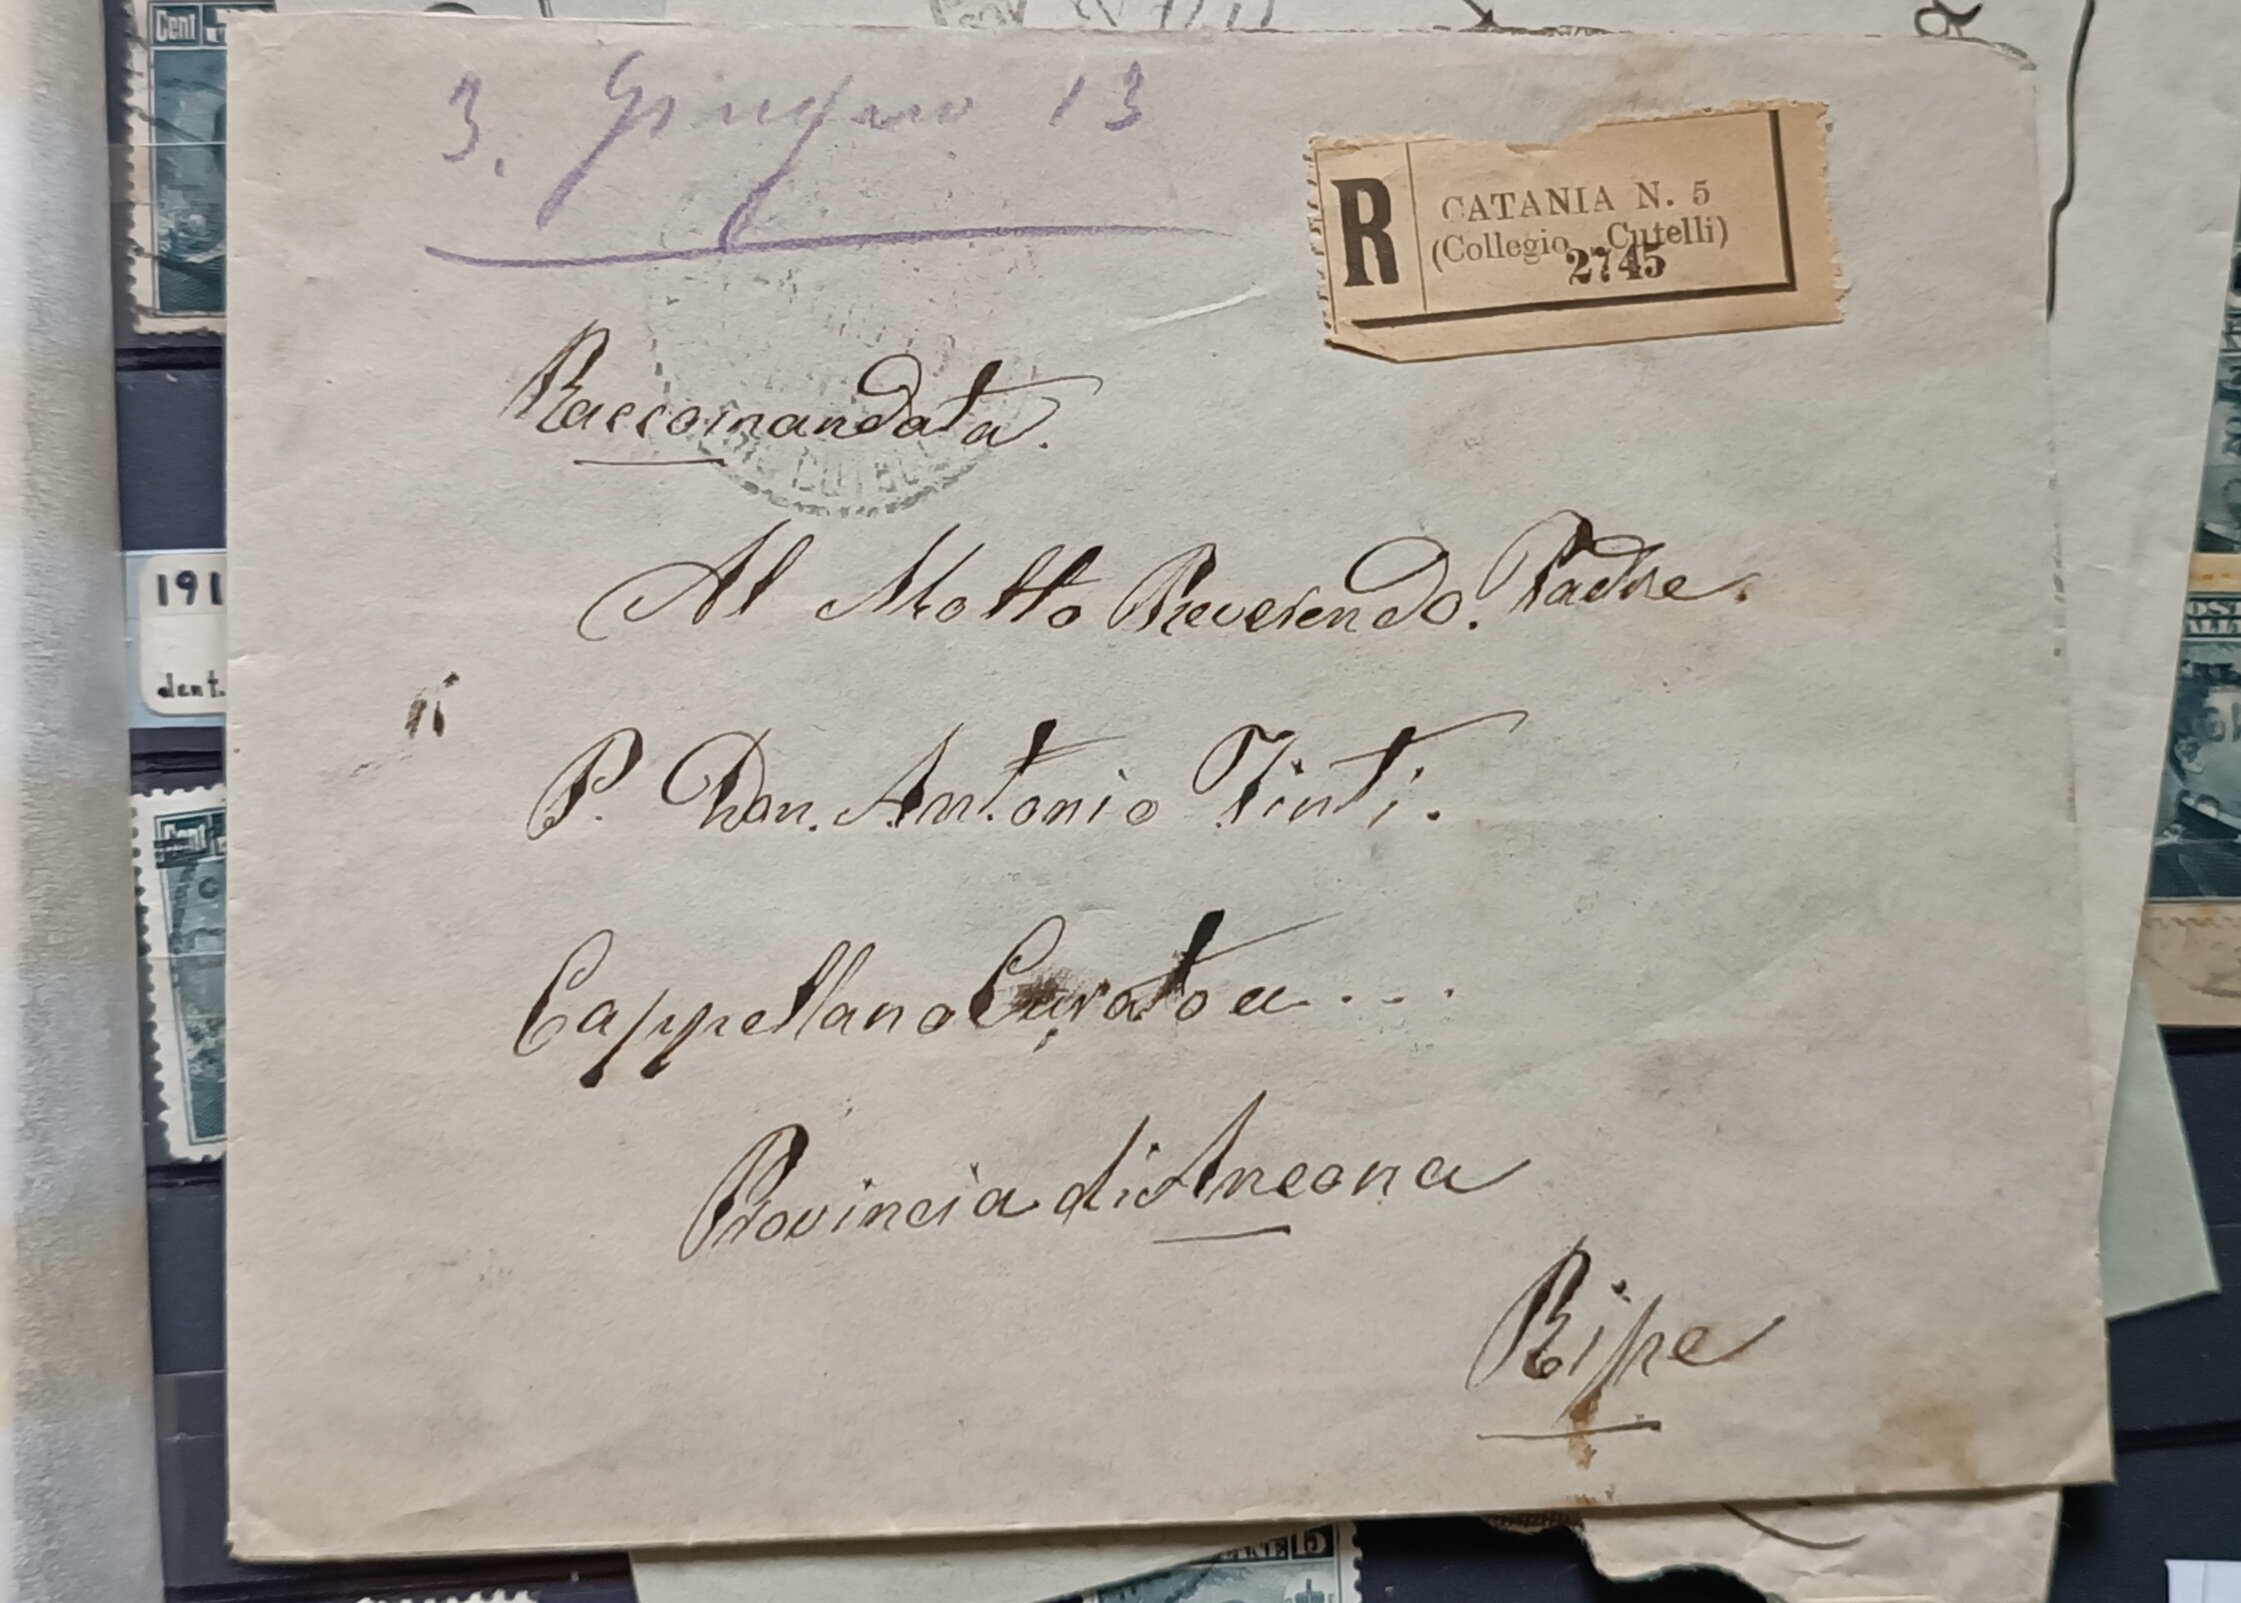 Cent
3. Giugno 13
R
CATANIA N. 5
(Collegio Cutelli)
2745
Raccomandata.
Al Molto Reverendo. Padre.
191
dent.
P. Don. Antonio Tinti.
Cappellano Curato a ...
Provincia di Ancona
Ripe
Cent
5